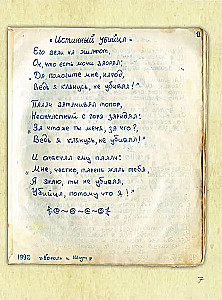 „Истинный убийца“
Его вели на эшафот,
Ох, что есть мочи заорал:
„Да помогите мне, народ,
Ведь я клянусь, не убивал!“
Палач затачивал топор,
Несчастный с горя зарыдал:
„За что же ты меня, за что?,
Ведь я клянусь, не убивал!“
И отвечал ему палач:
„Мне, честно, парень жаль тебя,
Я знаю, ты не убивал,
Убийца, потому что я!“
1992 „Король и Шут“
7